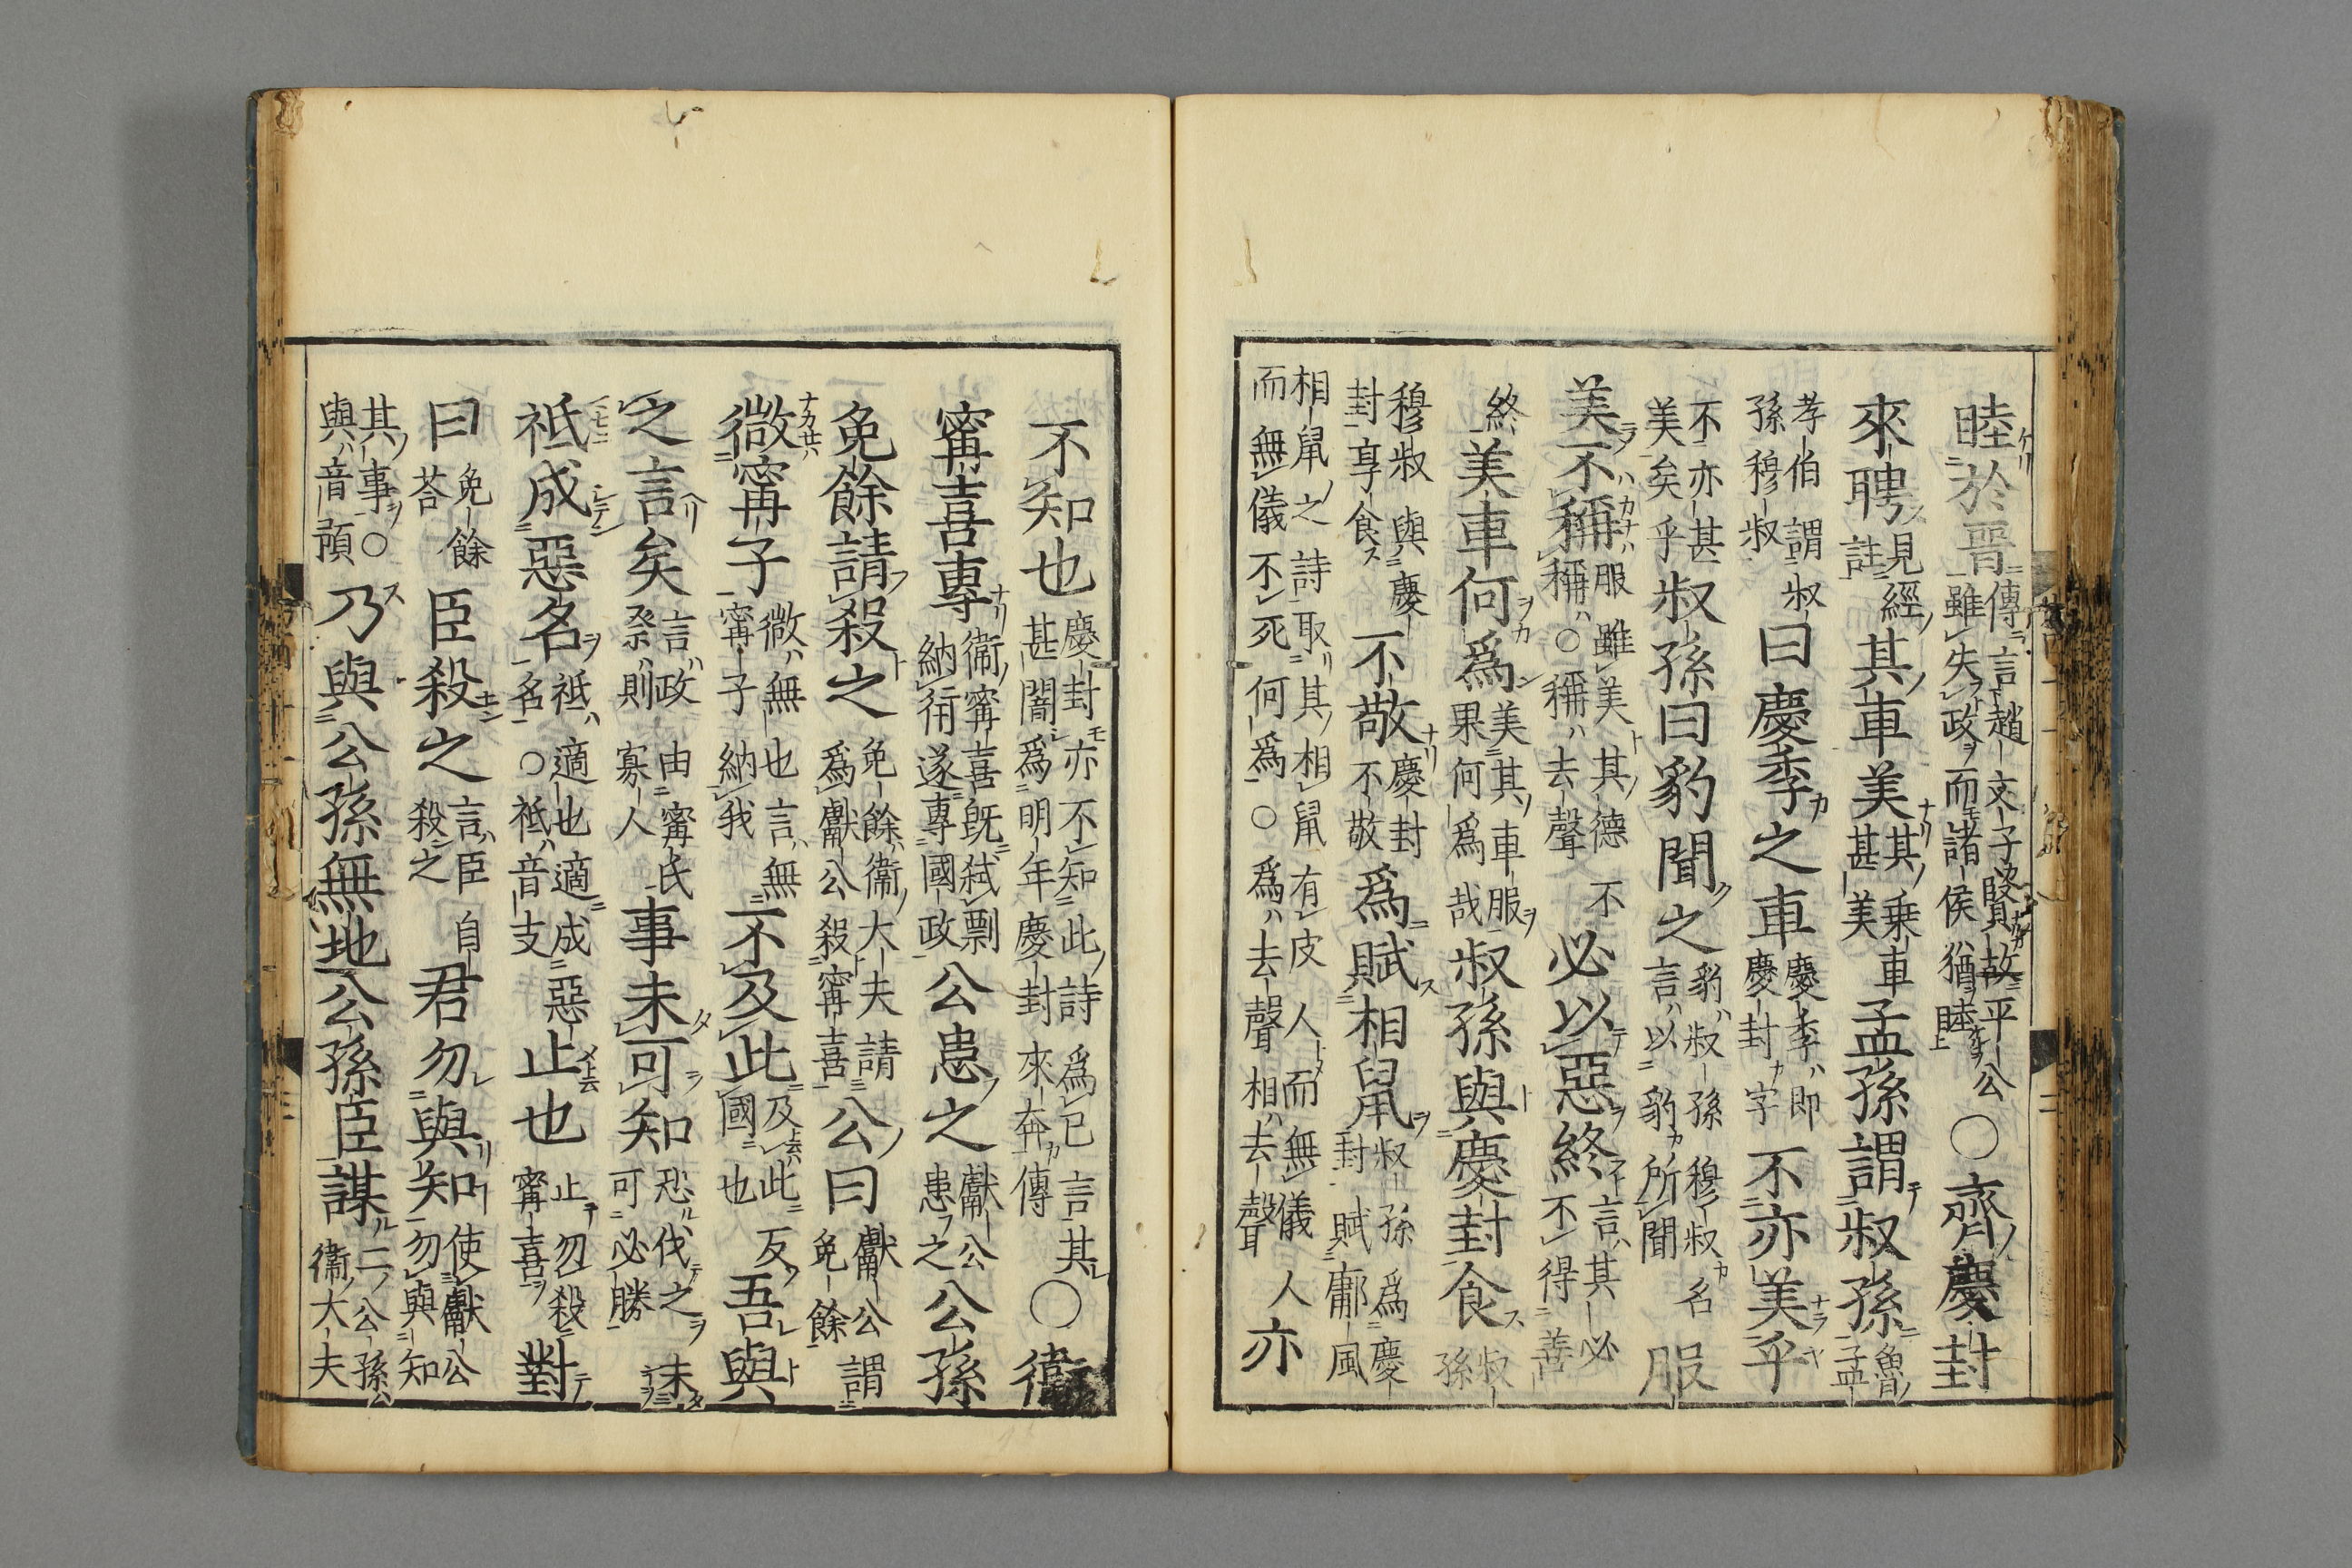 睦於晋傳言趙文子賢故平公雖失政而諸侯猶睦○齊慶封
來聘見經註其車美其乗車甚美孟孫謂叔孫魯孟
孝伯謂叔孫穆叔曰慶季之車慶季即慶封字不亦美乎
不亦甚美矣乎叔孫曰豹聞之豹叔孫穆叔名言以豹所聞服
美不稱服雖美其德不稱○稱去聲必以惡終言其必不得善
終美車何爲美其車服果何爲哉叔孫與慶封食叔孫
穆叔與慶封享食不敬慶封不敬爲賦相鼠叔孫爲慶封賦鄘風
相鼠之詩取其相鼠有皮人而無儀人而無儀不死何爲○爲去聲相去聲亦
不知也慶封亦不知此詩爲已言其甚闇爲明年慶封來奔傳○衛
甯喜專衛甯喜既弑剽納衎遂專國政公患之獻公患之公孫
免餘請殺之免餘衛大夫請爲獻公殺甯喜公曰獻公謂免餘
微甯子微無也言無甯子納我不及此及此反國也吾與
之言矣言政由甯氏祭則寡人事未可知恐伐之未可必勝
祗成惡名祗適也適成惡名○祗音支止也止勿殺甯喜對
曰免餘荅臣殺之言臣自殺之君勿與知使獻公勿與知
其事○與音預乃與公孫無地公孫臣謀二公孫衛大夫